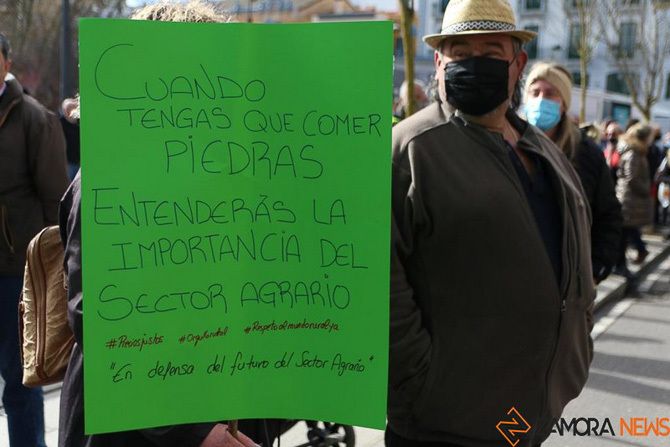 CUANDO
TENGAS QUE COMER
PIEDRAS
ENTENDERÁS LA
IMPORTANCIA DEL
SECTOR AGRARIO
#Preciosjustos #Orgullorural #Respetoalmundoruralya
"En defensa del futuro del Sector Agrario"
ZAMORA NEWS